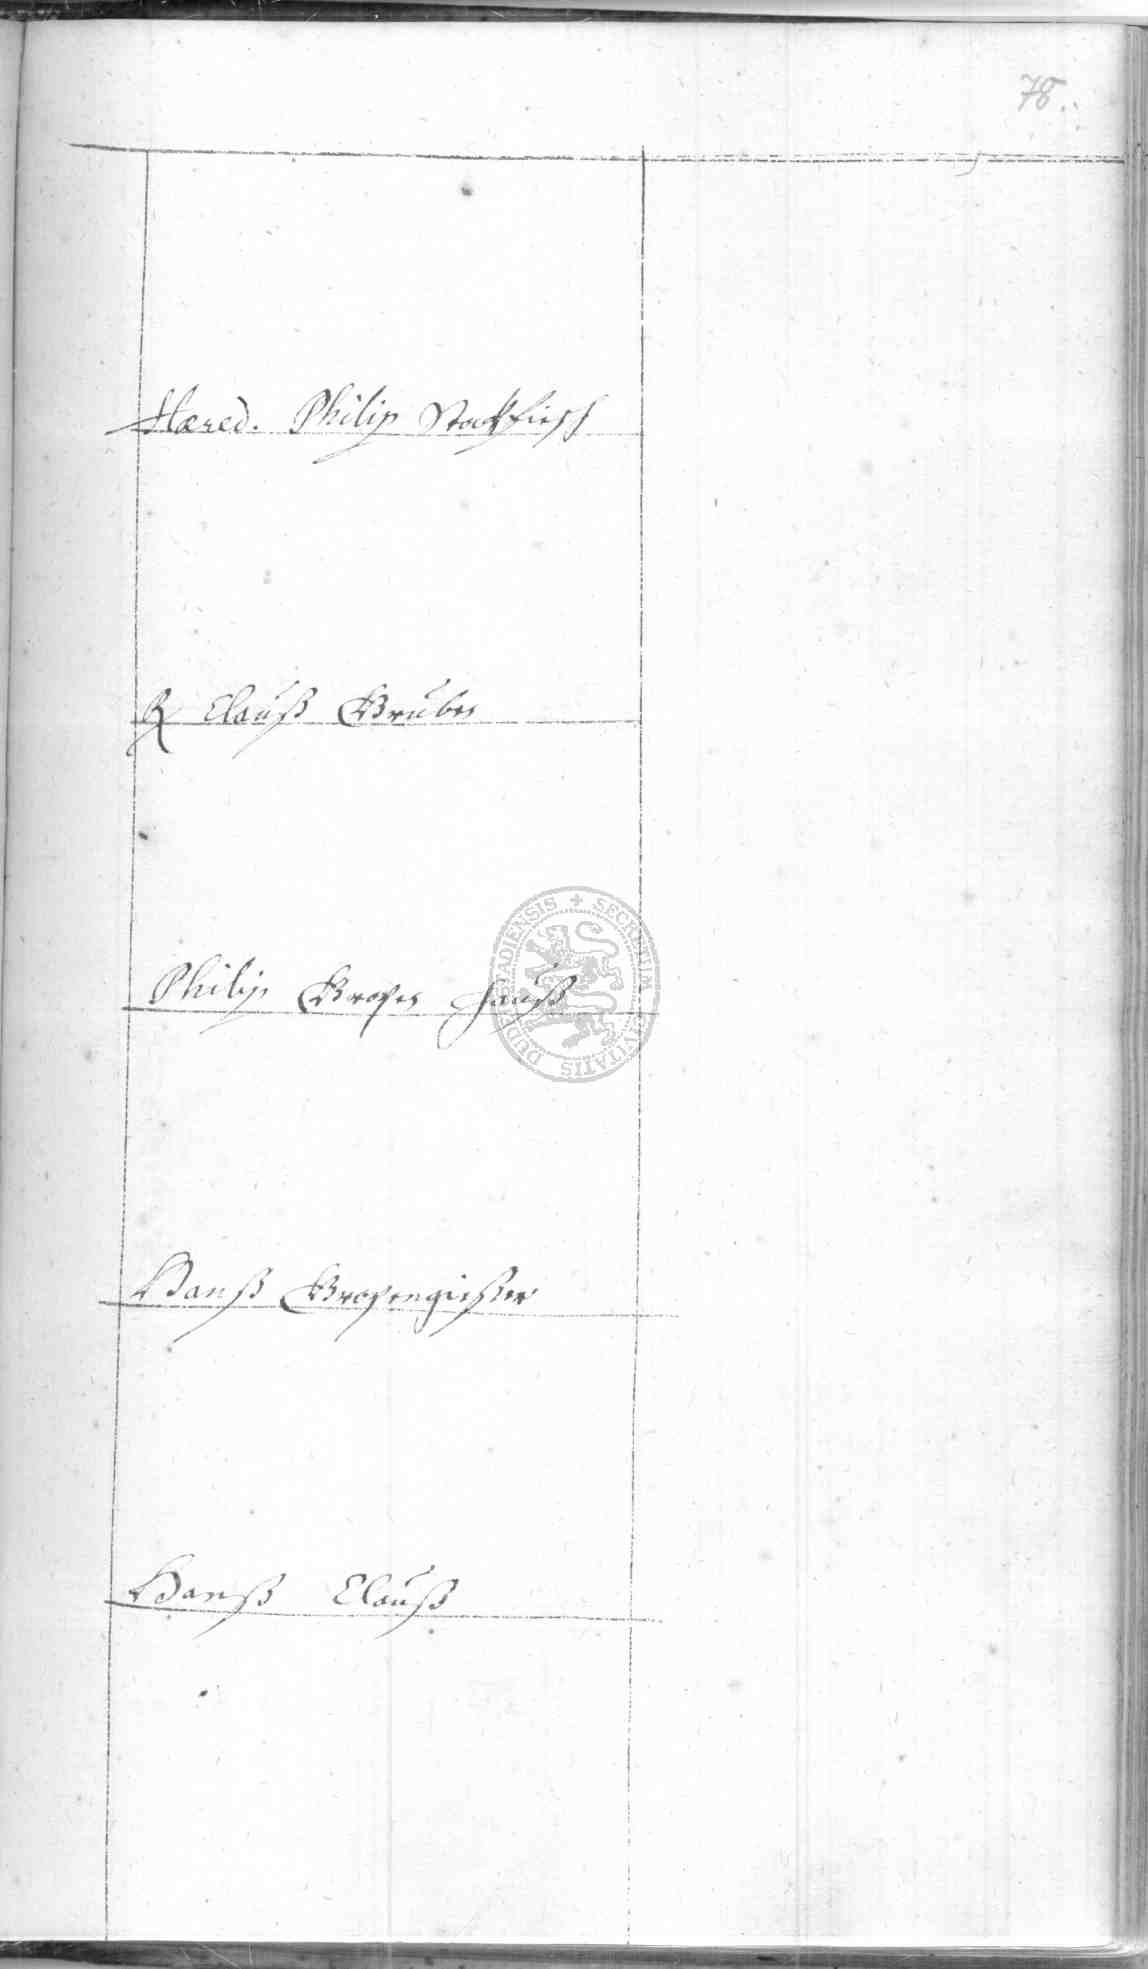 78.
Hæred. Philip Stockfisch
R Clauß Gruber
Philip Gropen Hauß
Hanß Gropengießer
Hanß Clauß
SECRETUM CIVITATIS DUDERSTADIENSIS